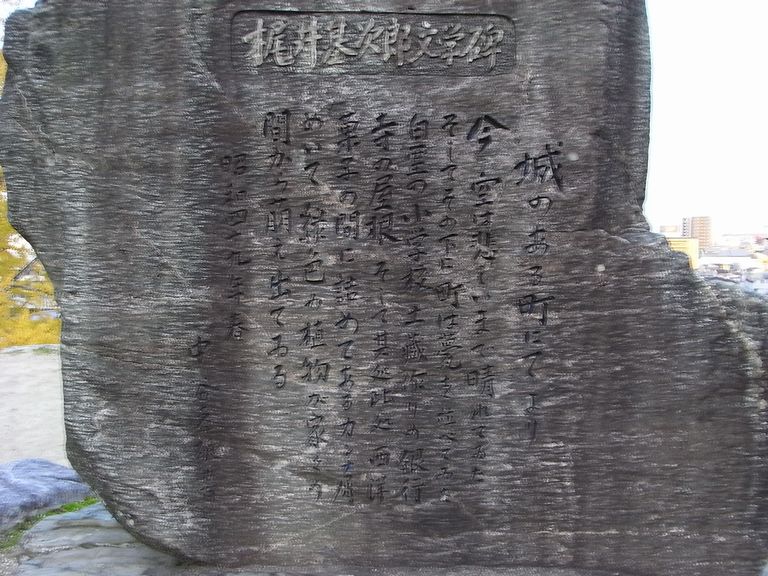 梶井基次郎文学碑
城のある町にてより
今、空は悲しいまで晴れてゐた
そしてその下に町は甍を並べてゐた
白堊の小学校 土蔵作りの銀行
寺の屋根 そして其処此処 西洋
菓子の間に詰めてあるカンナ屑
めいて 緑色の植物が家々の
間から萌え出てゐる
昭和四九年春
中